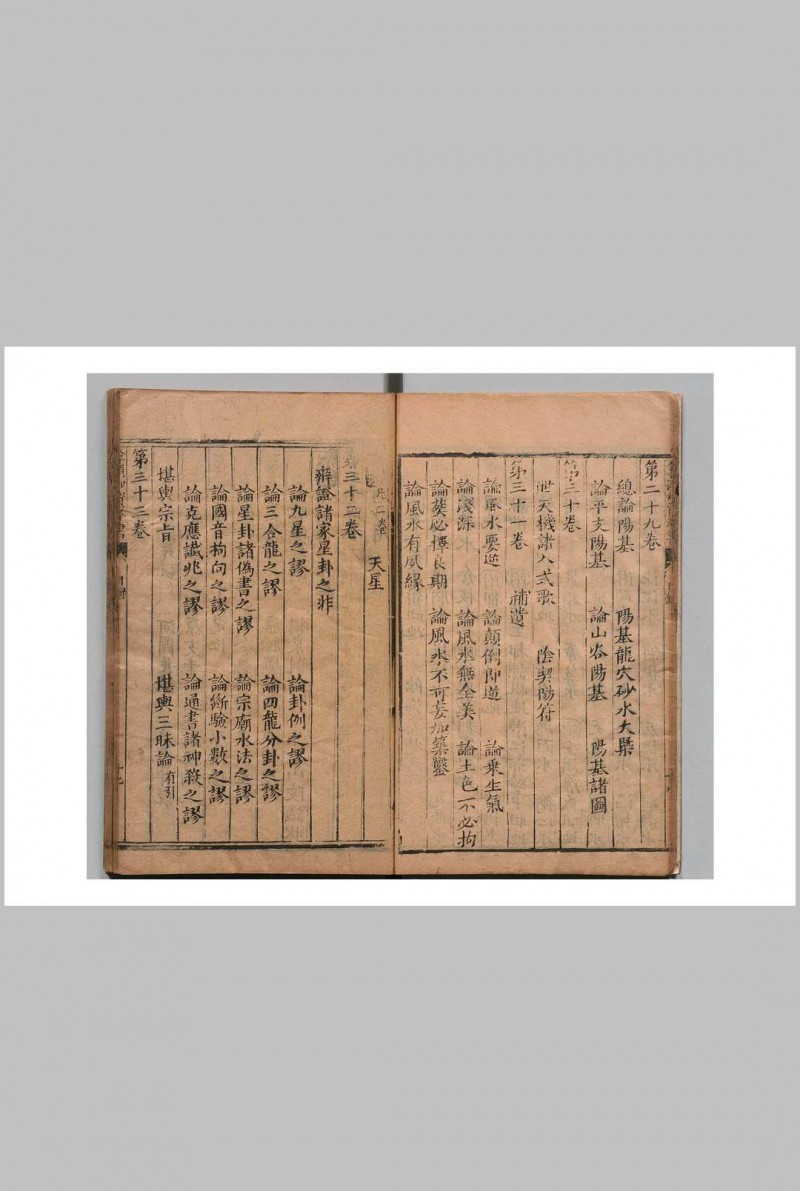 第二十九卷
總論陽基 陽基龍穴砂水大槩
論平支陽基 論山谷陽基 陽基諸圖
第三十卷
泄天機諸入式歌 陰契陽符
第三十一卷 補遺
論風水要逆 論顛倒即逆 論乘生氣
論淺深 論風水無全美 論土色不必拘
論葬必擇良期 論風水不可妄加築鑿
論風水有夙緣
天星
第三十二卷
辯證諸家星卦之非
論九星之謬 論卦例之謬
論三合龍之謬 論四龍分卦之謬
論星卦諸偽書之謬 論宗廟水法之謬
論國音拘向之謬 論斷驗小數之謬
論克應讖兆之謬 論通書諸神殺之謬
堪輿宗旨 堪輿三昧論 有引
第三十三卷